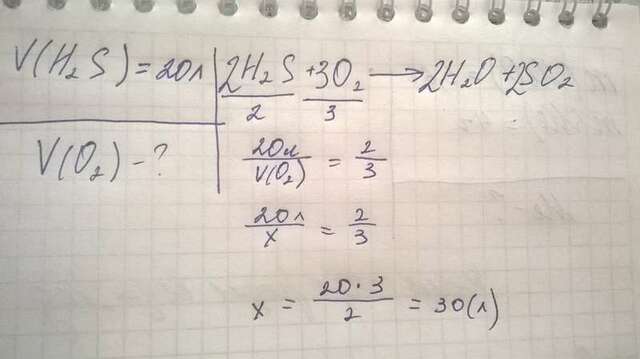 V(H₂S) = 20л
2H₂S + 3O₂ → 2H₂O + 2SO₂
2 3
V(O₂) - ?
20л/V(O₂) = 2/3
20л/x = 2/3
x = 20·3/2 = 30(л)